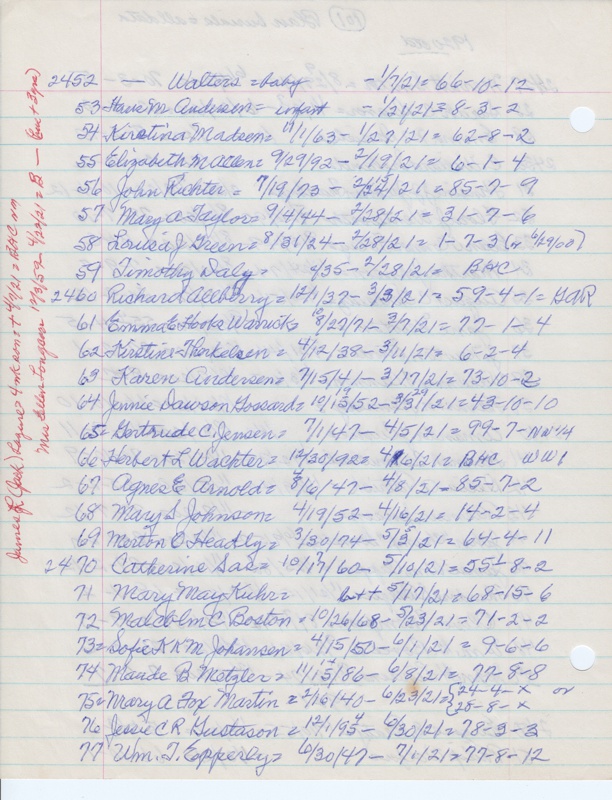 2452 — Walters = baby - 1/7/21 = 66-10-12
53 Hans M Andersen = infant - 1/21/21 = 8-3-2
54 Kirstina Madsen = 1/63 - 1/27/21 = 62-8-2
55 Elizabeth M Allen = 9/29/92 - 2/19/21 = 6-1-4
56 John Richter = 7/19/73 - /21 = 85-7-9
57 Mary A Taylor = 9/4/44 - 2/28/21 = 31-7-6
58 Louisa J Green = 8/31/24 - 2/28/21 = 1-7-3 (or 6/29/00)
59 Timothy Daly = /35 - 2/28/21 = BHC
2460 Richard Allberry = 12/1/37 - 3/3/21 = 59-4-1 = GAR
61 Emma E Hooks Warrick = /27/71 - 3/7/21 = 77-1-4
62 Kirstine Thorkelsen = 4/12/38 - 3/11/21 = 6-2-4
63 Karen Andersen = 7/15/41 - 3/17/21 = 73-10-2
64 Jennie Dawson Gossard = /52 - /21 = 43-10-10
65 = Gertrude C. Jensen = 7/1/47 - 4/5/21 = 99-7-NW 1/4
66 Herbert L Wachter = 12/30/92 = 4/6/21 = BHC WW1
67 Agnes E Arnold = /6/47 - 4/8/21 = 85-7-2
68 Mary S Johnson = 4/19/52 - 4/16/21 = 14-2-4
69 Merton O Headly = 3/30/74 - 5/ /21 = 64-4-11
2470 Catherine Sas = 10/ /60 - 5/10/21 = 55-8-2
71 Mary May Kuhr = 5/17/21 = 68-15-6
72 - Malcolm C Boston = 10/26/68 - 5/23/21 = 71-2-2
73 = Sofie K K M Johansen = 4/15/50 - 6/1/21 = 9-6-6
74 Maude B Metzler = 11/ /86 - 6/8/21 = 77-8-8
75 = Mary A Fox Martin = 2/16/40 - 6/23/21 = {24-4-x or
{28-8-x
76 Jessie C R Gustason = 12/1/9 - 6/30/21 = 78-3-3
77 Wm. T. Epperly = 6/30/47 - 7/1/21 = 77-8-12
James R (Jack) 4/7/21 = BHC
Mrs Ellen 4/23/21 = B —